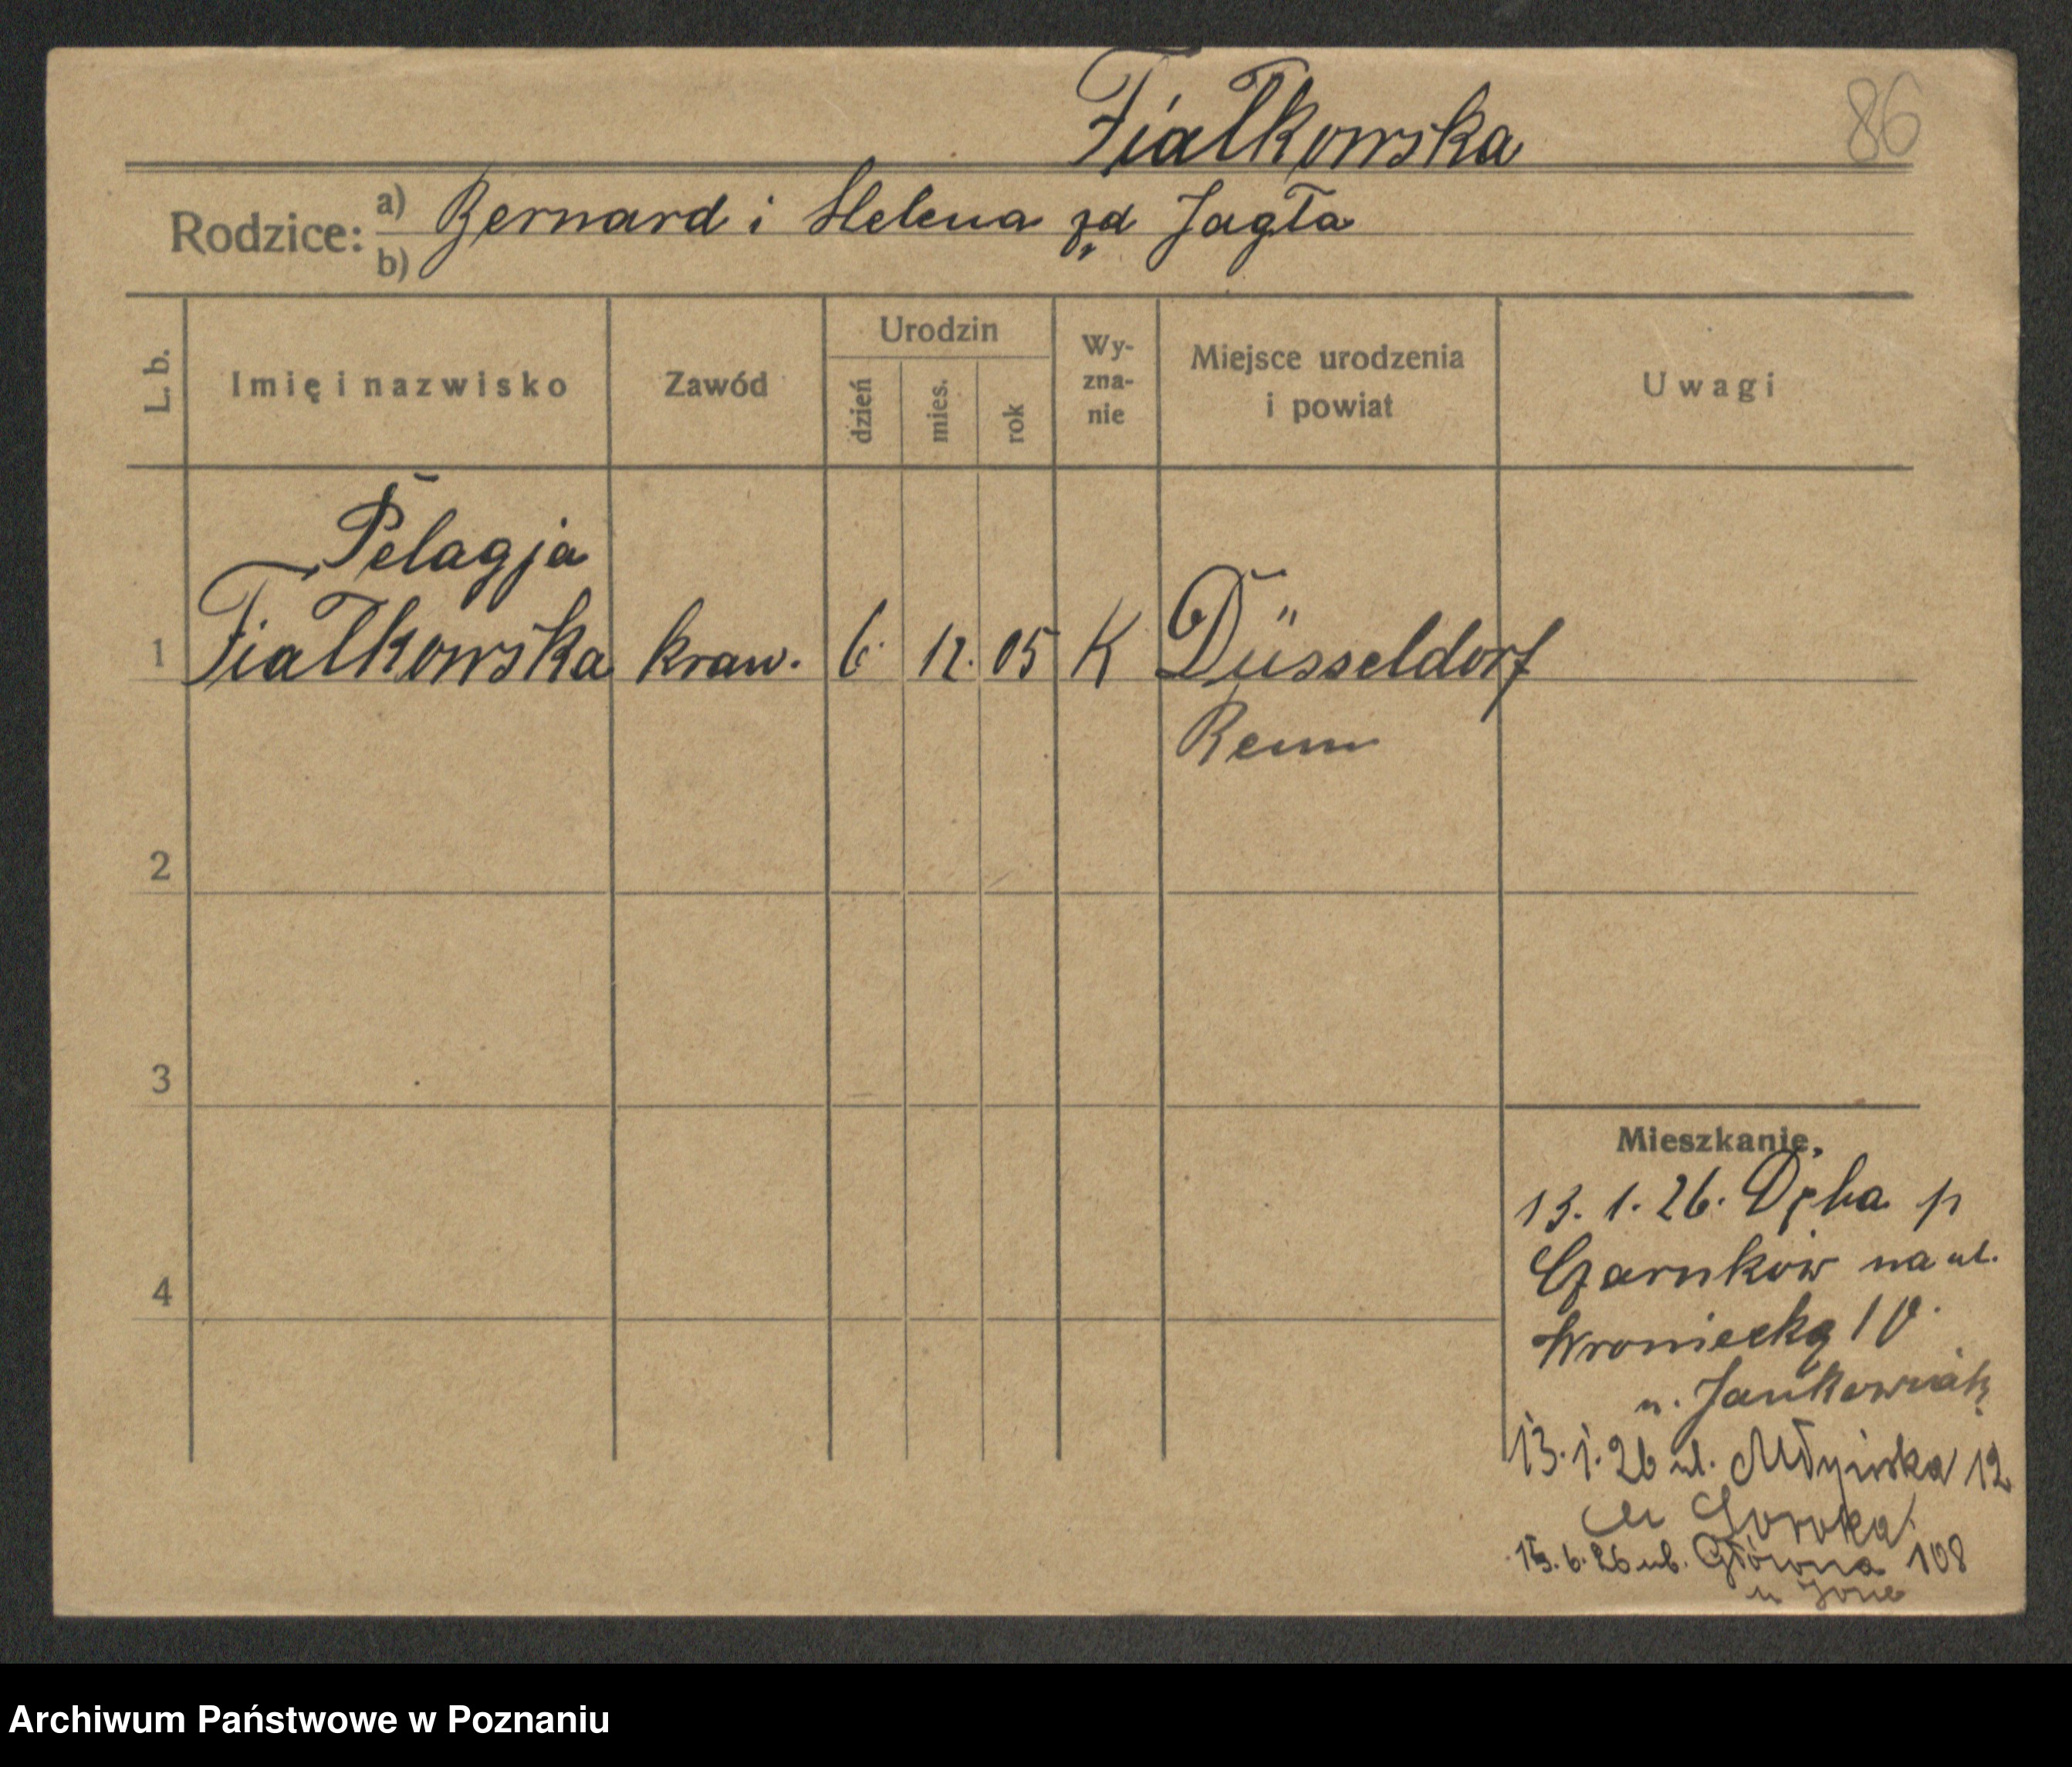 Fiałkowska
86
Rodzice: a) Bernard i Helena zd Jagła
b)
L. b.
Imię i nazwisko
Zawód
Urodzin
dzień
mies.
rok
Wy-
zna-
nie
Miejsce urodzenia
i powiat
Uwagi
Pelagja
1 Fiałkowska kraw. 6. 12. 05 K Düsseldorf
2
3
4
Mieszkanie,
13. 1. 26. Dęba p
Czarnków na ul.
Wroniecką
u. Jankowiak
13. 1. 26 ul. Młyńska 12
15. 6. 26 ul. Główna 108
u
Archiwum Państwowe w Poznaniu